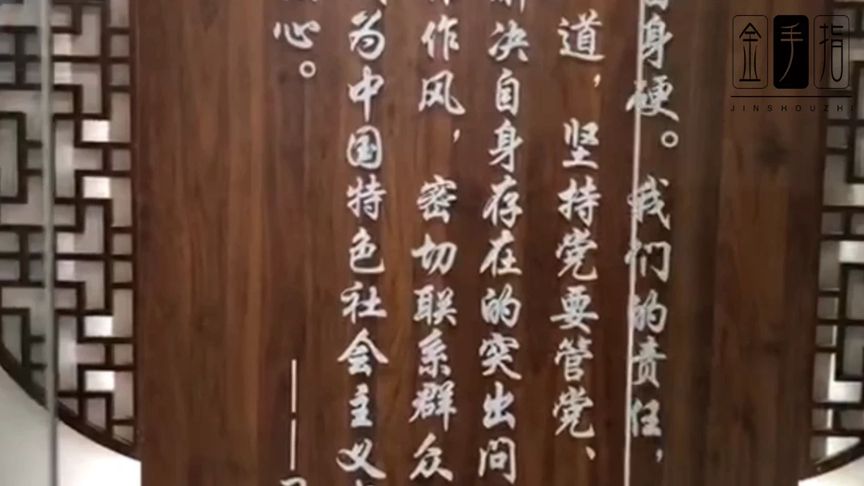 身硬。我们的责任，
道，坚持党要管党、
决自身存在的突出问
作风，密切联系群众
为中国特色社会主义
心。
——
金手指
JINSHOUZHI